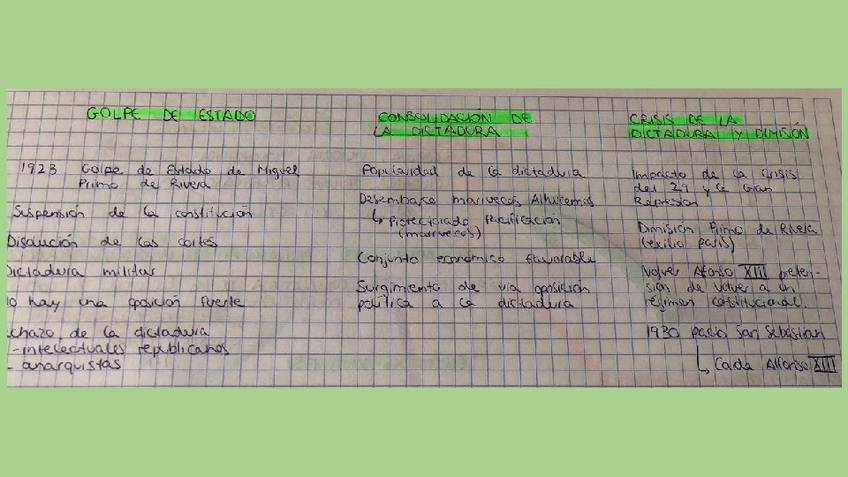 GOLPE DE ESTADO
1923 Golpe de Estado de Miguel
Primo de Rivera
Suspensión de la constitución
Disolución de las cortes
Dictadura militar
no hay una oposición fuerte
chazo de la dictadura
- intelectuales republicanos
- anarquistas
CONSOLIDACIÓN DE
LA DICTADURA
Popularidad de la dictadura
Desembarco marruecos Alhucemas
↳ Protectorado Pacificación
(marruecos)
Conjunto económico favorable
Surgimiento de via oposición
política a la dictadura
CRISIS DE LA
DICTADURA Y DIMISIÓN
Impacto de la crisis
del 29 y la Gran
Represion
Dimisión Primo de Rivera
(exilio paris)
Volver Afonso XIII preten-
sion de volver a un
régimen costitucional.
1930 pacto San Sebastian
↳ Caida Alfonso XIII